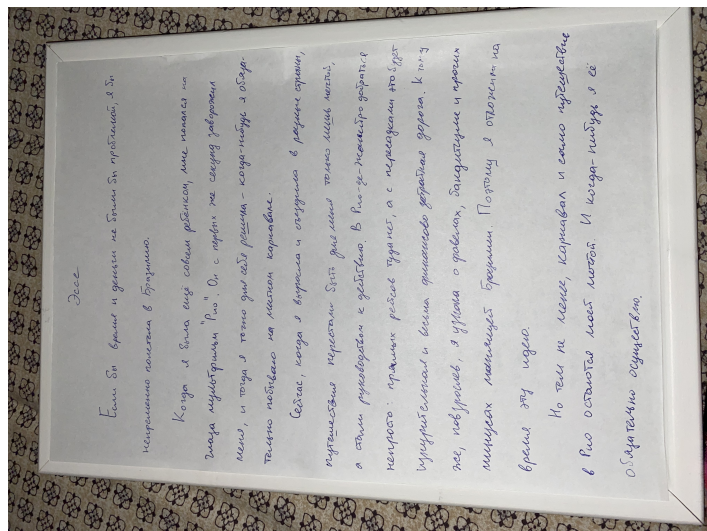 Эссе
Если бы время и деньги не были бы проблемой, я бы
непременно полетела в Бразилию.
Когда я была ещё совсем ребёнком, мне попался на
глаза мультфильм "Рио". Он с первых же секунд заворожил
меня, и тогда я точно для себя решила - когда-нибудь я обяза-
тельно побываю на местном карнавале.
Сейчас, когда я выросла и съездила в разные страны,
путешествия перестали быть для меня только лишь мечтой,
а стали руководством к действию. В Рио-де-Жанейро добраться
непросто: прямых рейсов туда нет, а с пересадками это будет
изнурительная и весьма финансово затратная дорога. К тому
же, повзрослев, я узнала о фавелах, бандитизме и прочих
минусах манящей Бразилии. Поэтому я отложила на
время эту идею.
Но тем не менее, карнавал и само путешествие
в Рио остаются моей мечтой. И когда-нибудь я её
обязательно осуществлю.